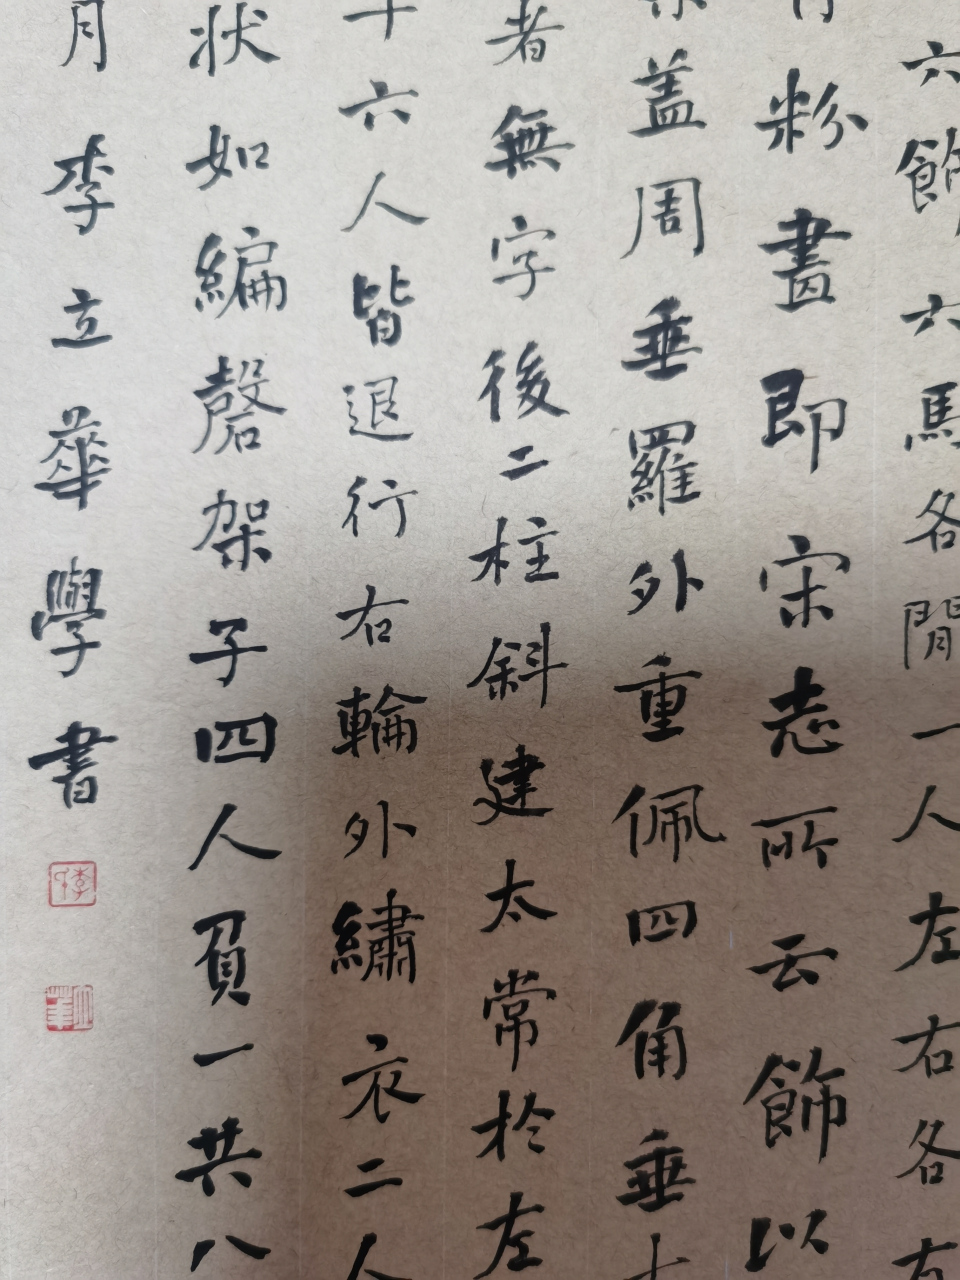 六飾六馬各間一人左右各
粉畫即宋志所云飾以
蓋周垂羅外重佩四角垂
者無字後二柱斜建太常於左
十六人皆退行右輪外繡衣二人
狀如編磬架子四人負一共八
月李立華學書